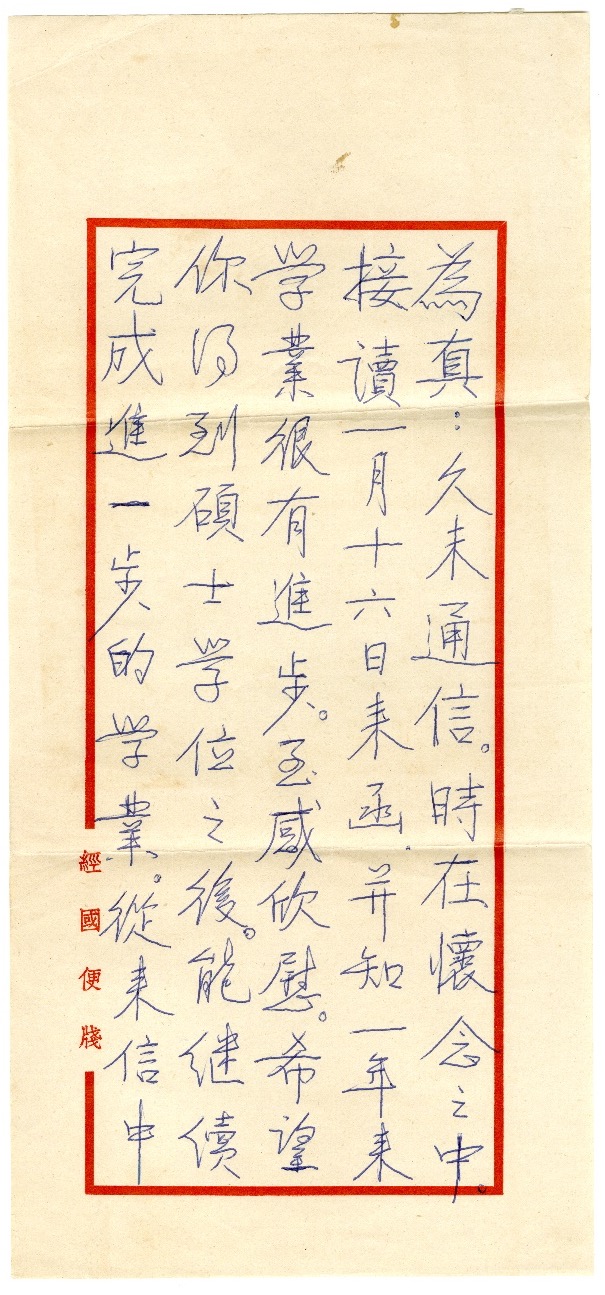 為真：久未通信。時在懷念之中。
接讀一月十六日来函.并知一年来
学業很有進步。至感欣慰。希望
你得到碩士学位之後。能继續
完成進一步的学業。從来信中
經國便牋